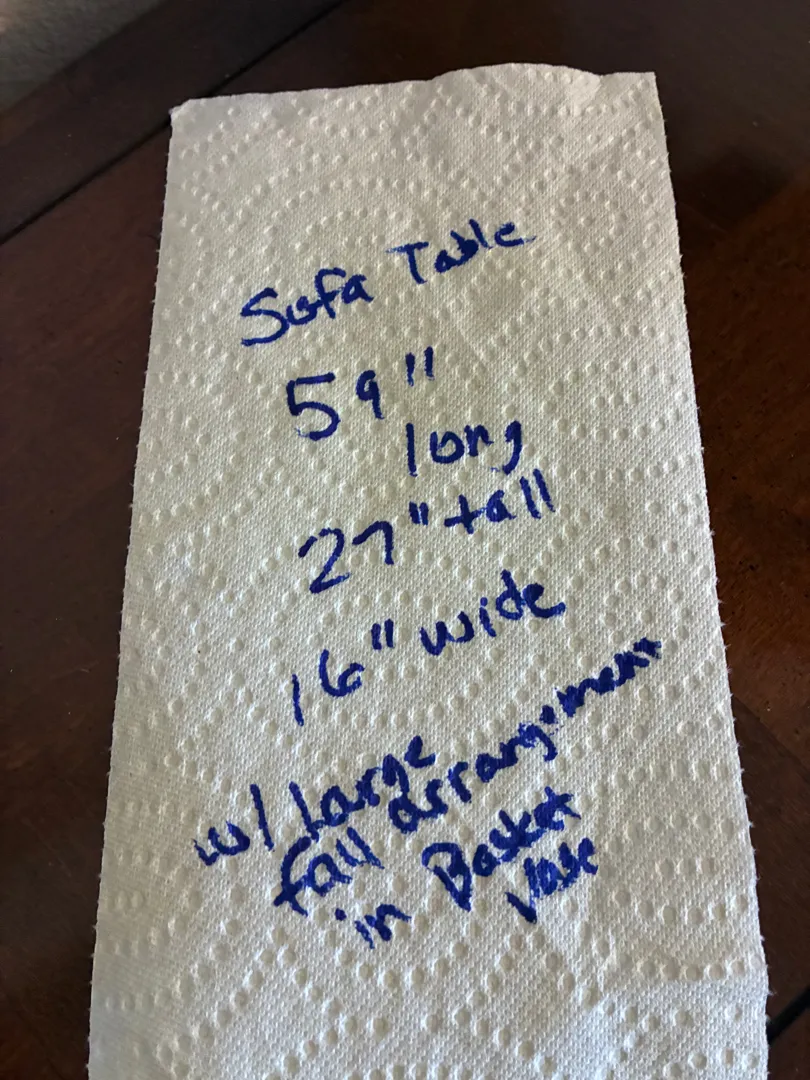 Sofa Table
59"
long
27" tall
16" wide
w/ Large
fall arrangement
in Basket
Vase